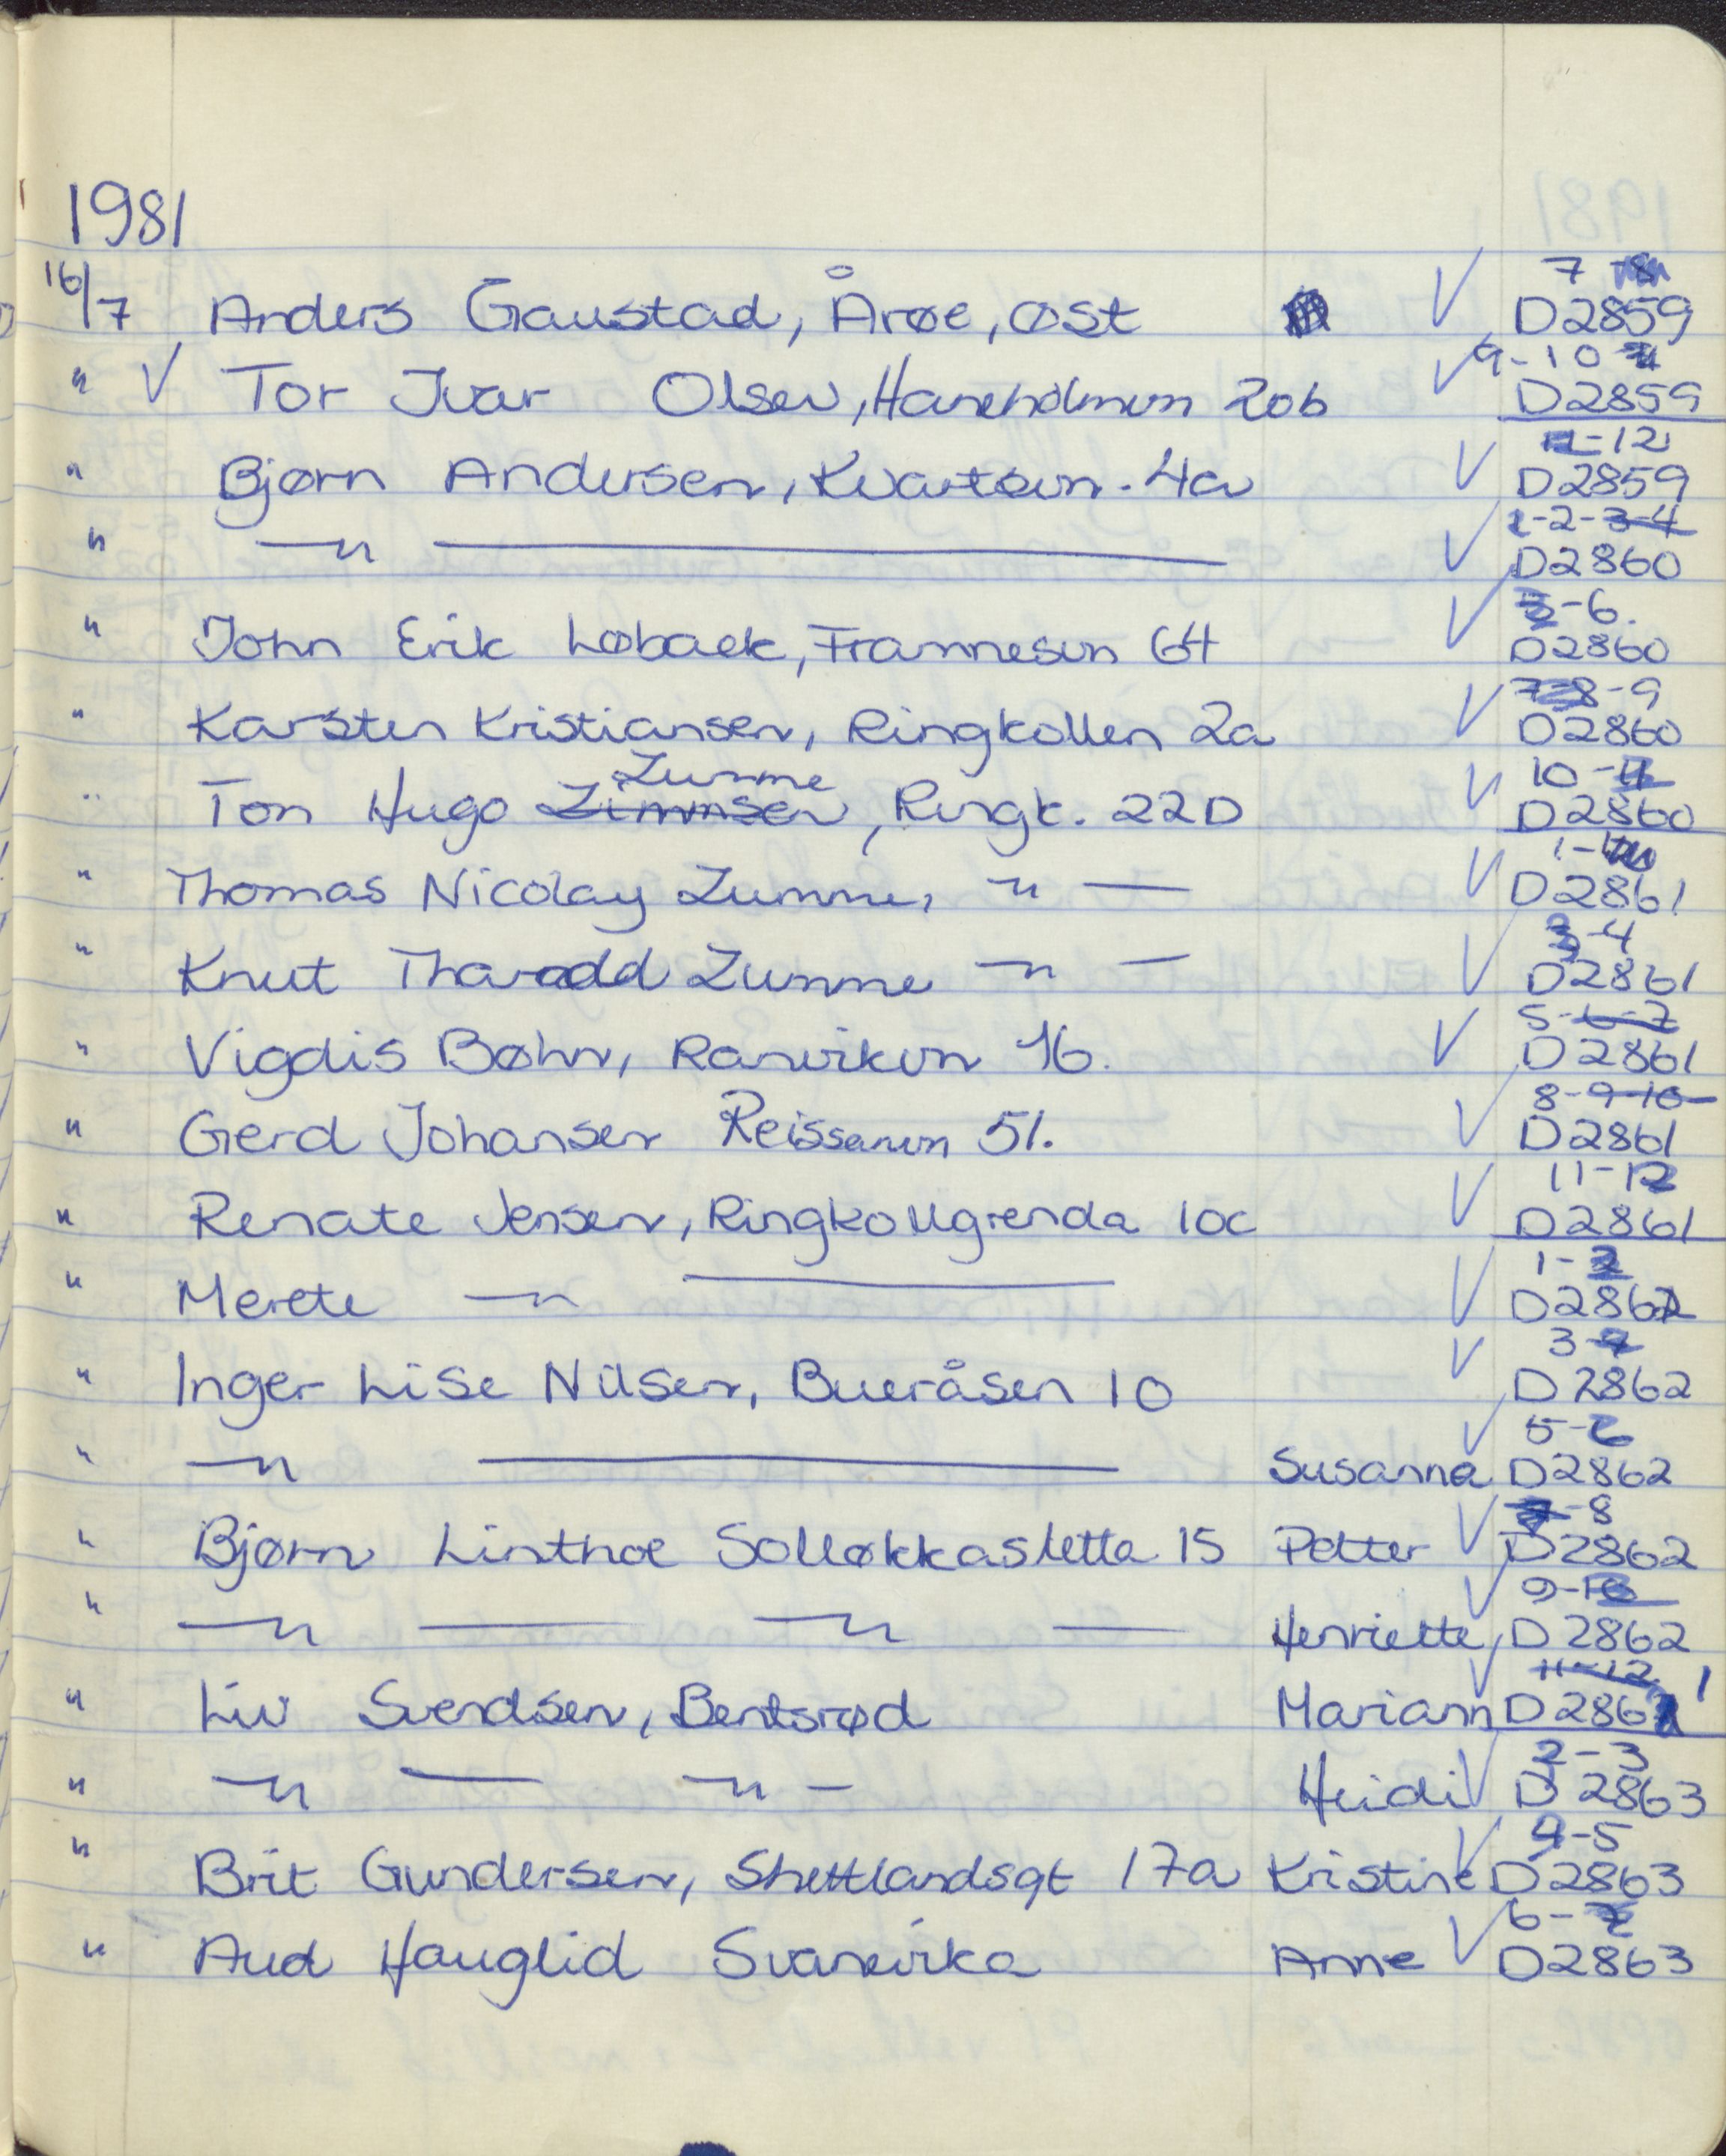 1981
7 8
16/7 Anders Gaustad, Årøe, øst D2859
9-10
" Tor Ivar Olsen, Haneholmvn 20b D2859
11-12
" Bjørn Andersen, Kvartsvn. 4a D2859
1-2-3-4
" —"— D2860
5-6.
" John Erik Løbaek, Framnesvn 64 D2860
7-8-9
" Karsten Kristiansen, Ringkollen 2a D2860
Zumme 10-11
" Tom Hugo Zimmsen, Ringk. 22D D2860
1-
" Thomas Nicolay Zumme, —"— D2861
3-4
" Knut Tharadd Zumme —"— D2861
5-6-7
" Vigdis Bøhn, Ranvikvn 16. D2861
8-9-10
" Gerd Johansen 51. D2861
11-12
" Renate Jensen, Ringkollgrenda 10c D2861
1-2
" Merete —"— D2862
3-4
" Inger Lise Nilsen, Bueråsen 10 D2862
5-6
" —"— Susanna D2862
7-8
" Bjørn Linthoe Solløkkasletta 15 Petter D2862
9-10
" —"— —"— Henriette D2862
11-12 1
" Liv Svendsen, Bentsrød Mariann D2862
2-3
" —"— —"— Heidi D2863
4-5
" Brit Gundersen, Shettlandsgt 17a Kristine D2863
6-7
" Aud Hauglid Svanevika Anne D2863